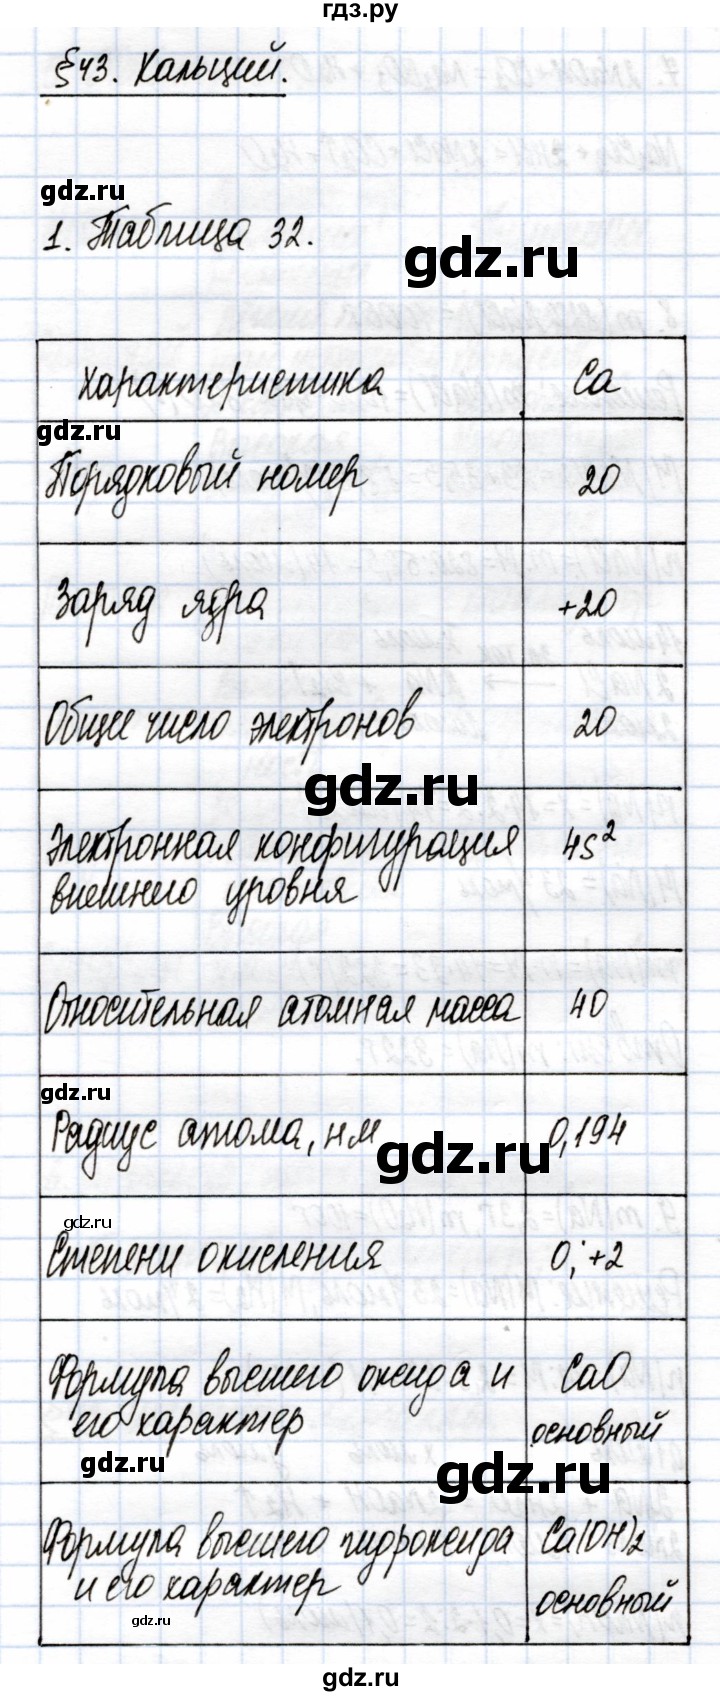 гдз.ру
§43. Кальций.
gdz.ru
1. Таблица 32.
gdz.ru
Характеристика Ca
gdz.ru
Порядковый номер 20
Заряд ядра +20
Общее число электронов 20
gdz.ru
Электронная конфигурация 4s²
внешнего уровня
Относительная атомная масса 40
gdz.ru
Радиус атома, нм 0,194
gdz.ru
gdz.ru
Степени окисления 0; +2
Формула высшего оксида и CaO
его характер основный
gdz.ru
gdz.ru
Формула высшего гидроксида Ca(OH)₂
и его характер основный
gdz.ru
gdz.ru